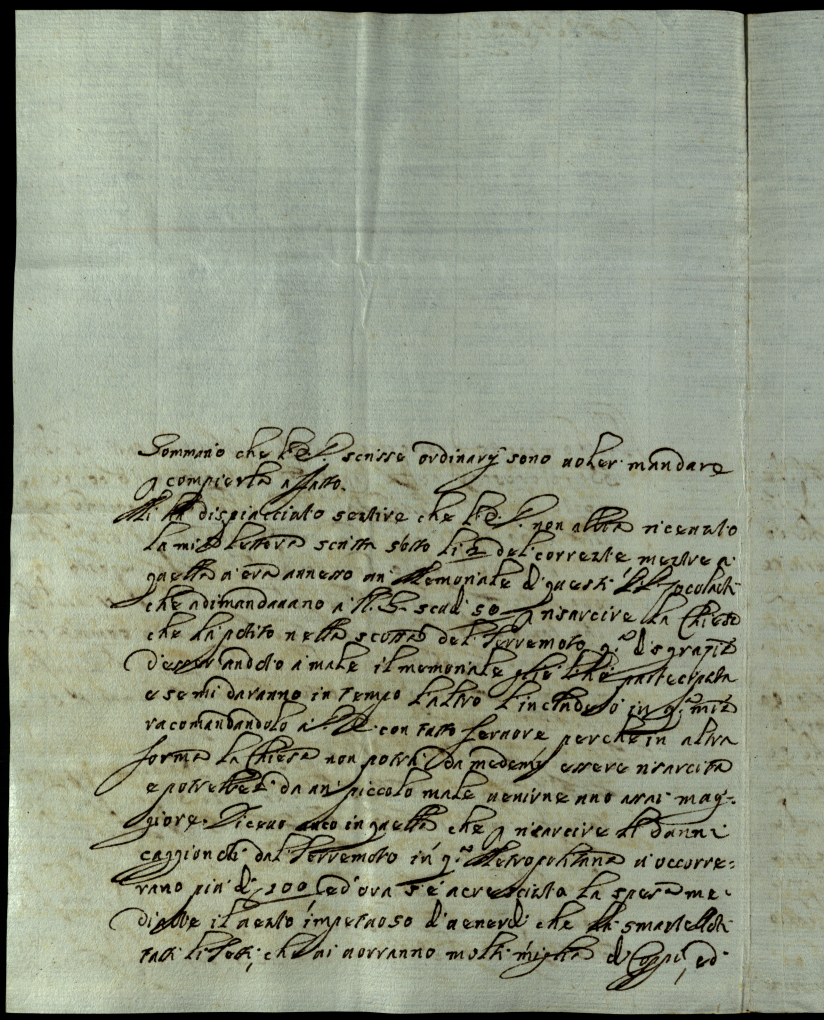 Sommario che V.E. scrisse ordinarÿ sono voler mandare
compierla affatto.
Mi ha dispiacciato sentire che V.E. non abbia riceuuto
la mia lettera scritta sotto li 2 del corrente mentre a
quella u'era annesso un' Memoriale di questi PP. Zocolanti
che adimandauano a N.S. scudi 50 risarcire la Chiesa
che ha patito nella scossa del Terremoto q.a disgratia
d'esser andato a male il memoriale gliel'hò partecipata
e se mi daranno in tempo l'altro l'includerò in q.a mia
racomandandolo a V.E. con tutto feruore perche in altra
forma la Chiesa non potrà da medemi essere risarcita
e potrebbe da un' piccolo male uenirne uno assai mag:
giore. Diceuo anco in quella che risarcire li danni
caggionati dal Terremoto in q.a Metropolitana ui occorre:
rano più di 200 ed'ora s'è acresciuta la spesa me:
diante il uento impetuoso di uenerdi che hà smantellati
tutti li Tetti, che ui uorranno molti migliara di Coppi, ed